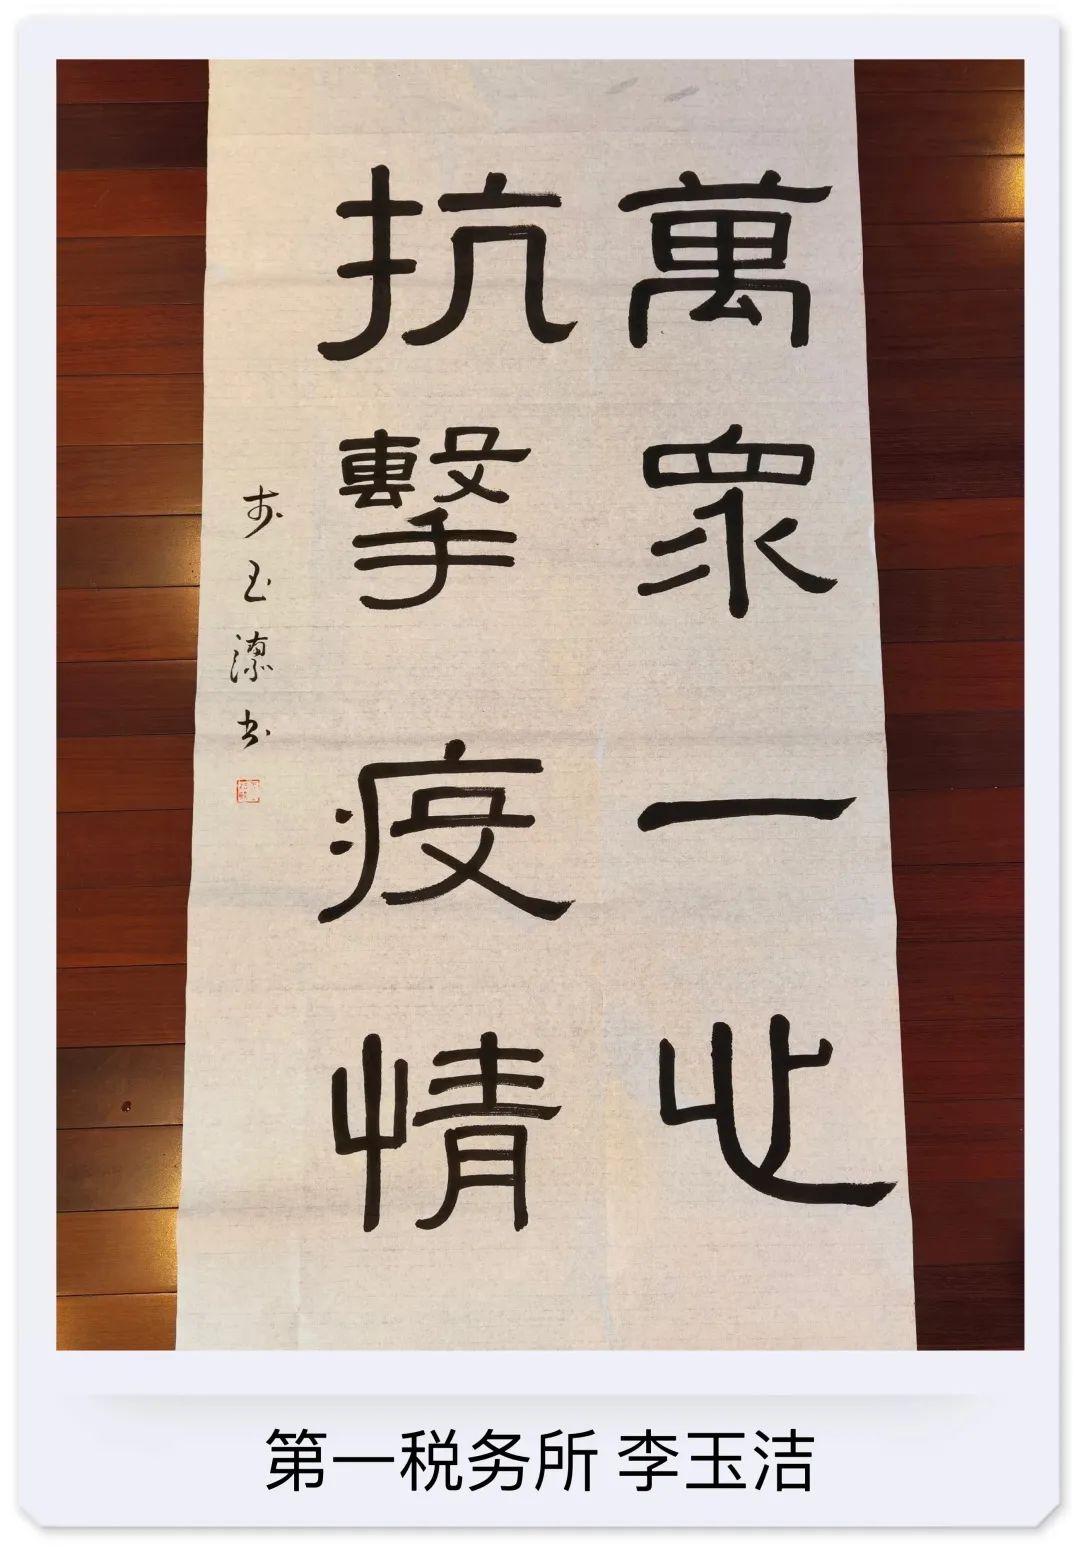 萬眾一心
抗擊疫情
李玉潔书
第一税务所 李玉洁